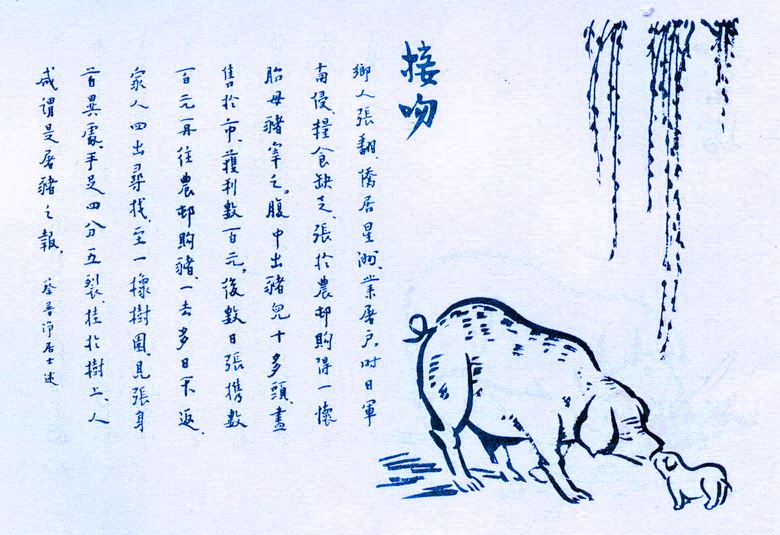 接吻
鄉人張翻、僑居星洲、業屠戶。时日軍
南侵、糧食缺乏、張於農邨購得一懷
胎母豬宰之。腹中出豬兒十多頭、盡
售於市、獲利數百元。後數日張携數
百元再往農邨購豬、一去多日不返、
家人四出尋找、至一橡樹園、見張身
首異處、手足四分五裂、挂於樹上、人
咸謂是屠豬之報。 蔡普淨居士述